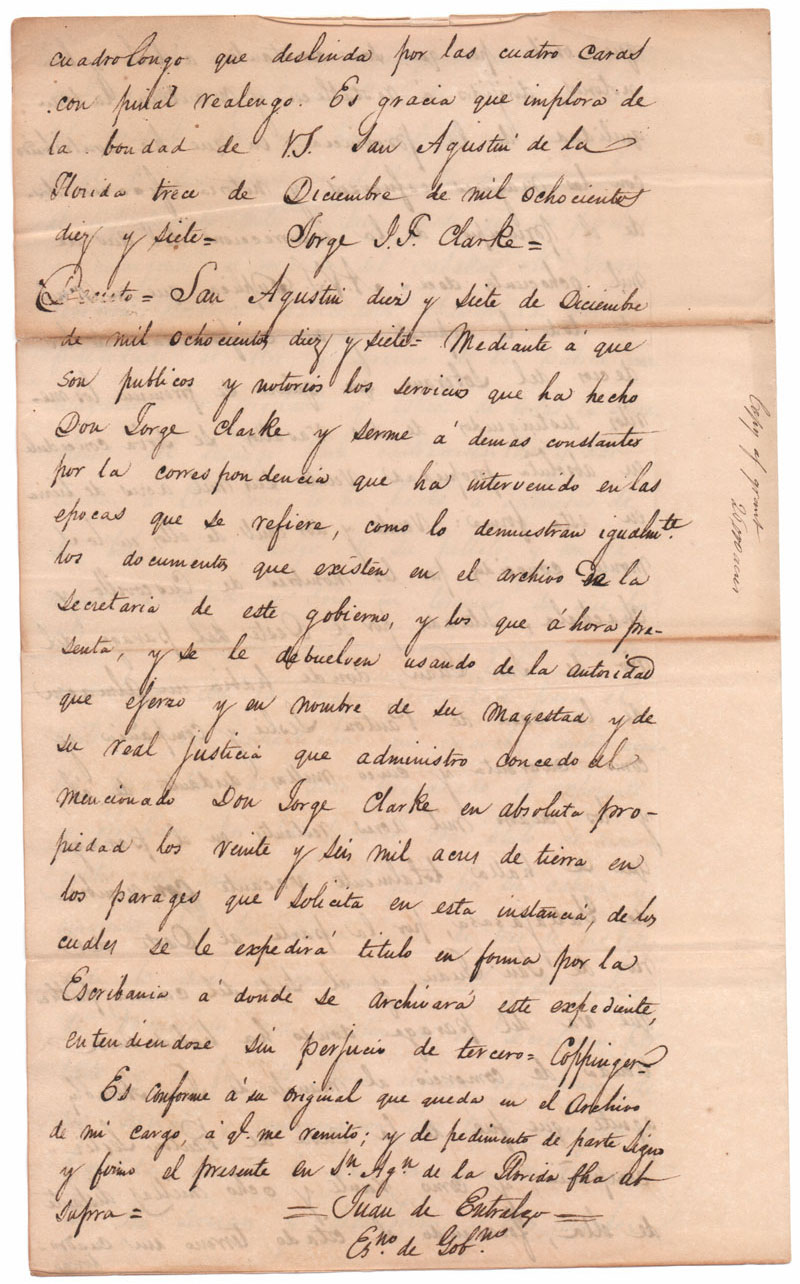 cuadrolongo que deslinda por las cuatro caras
con pinal realengo. Es gracia que implora de
la bondad de V.S. San Agustin de la
Florida trece de Diciembre de mil ochocientos
diez y siete= Jorge J. F. Clarke=
Decreto= San Agustin diez y siete de Diciembre
de mil ochocientos diez y siete= Mediante á que
son publicos y notorios los servicios que ha hecho
Don Jorge Clarke y serme á demas constantes
por la correspondencia que ha intervenido en las
epocas que se refiere, como lo demuestran igualmte.
los documentos que existen en el archivo de la
secretaria de este gobierno, y los que áhora pre-
senta, y se le debuelven usando de la autoridad
que eferzo y en nombre de su Magestad y de
su real justicia que administro concedo al
mencionado Don Jorge Clarke en absoluta pro-
piedad los veinte y seis mil acres de tierra en
los parages que solicita en esta instancia, de los
cuales se le expedirá titulo en forma por la
Escribania á donde se archivará este expediente,
entendiendose sin perjucio de tercero= Coppinger=
Es conforme á su original que queda en el Archivo
de mi cargo, á qe. me remito; y de pedimento de parte signo
y firmo el presente en Sn. Agn. de la Florida fha ut
supra= = Juan de Entralgo =
Esno de Gobno
Copy of grant
22000 acres